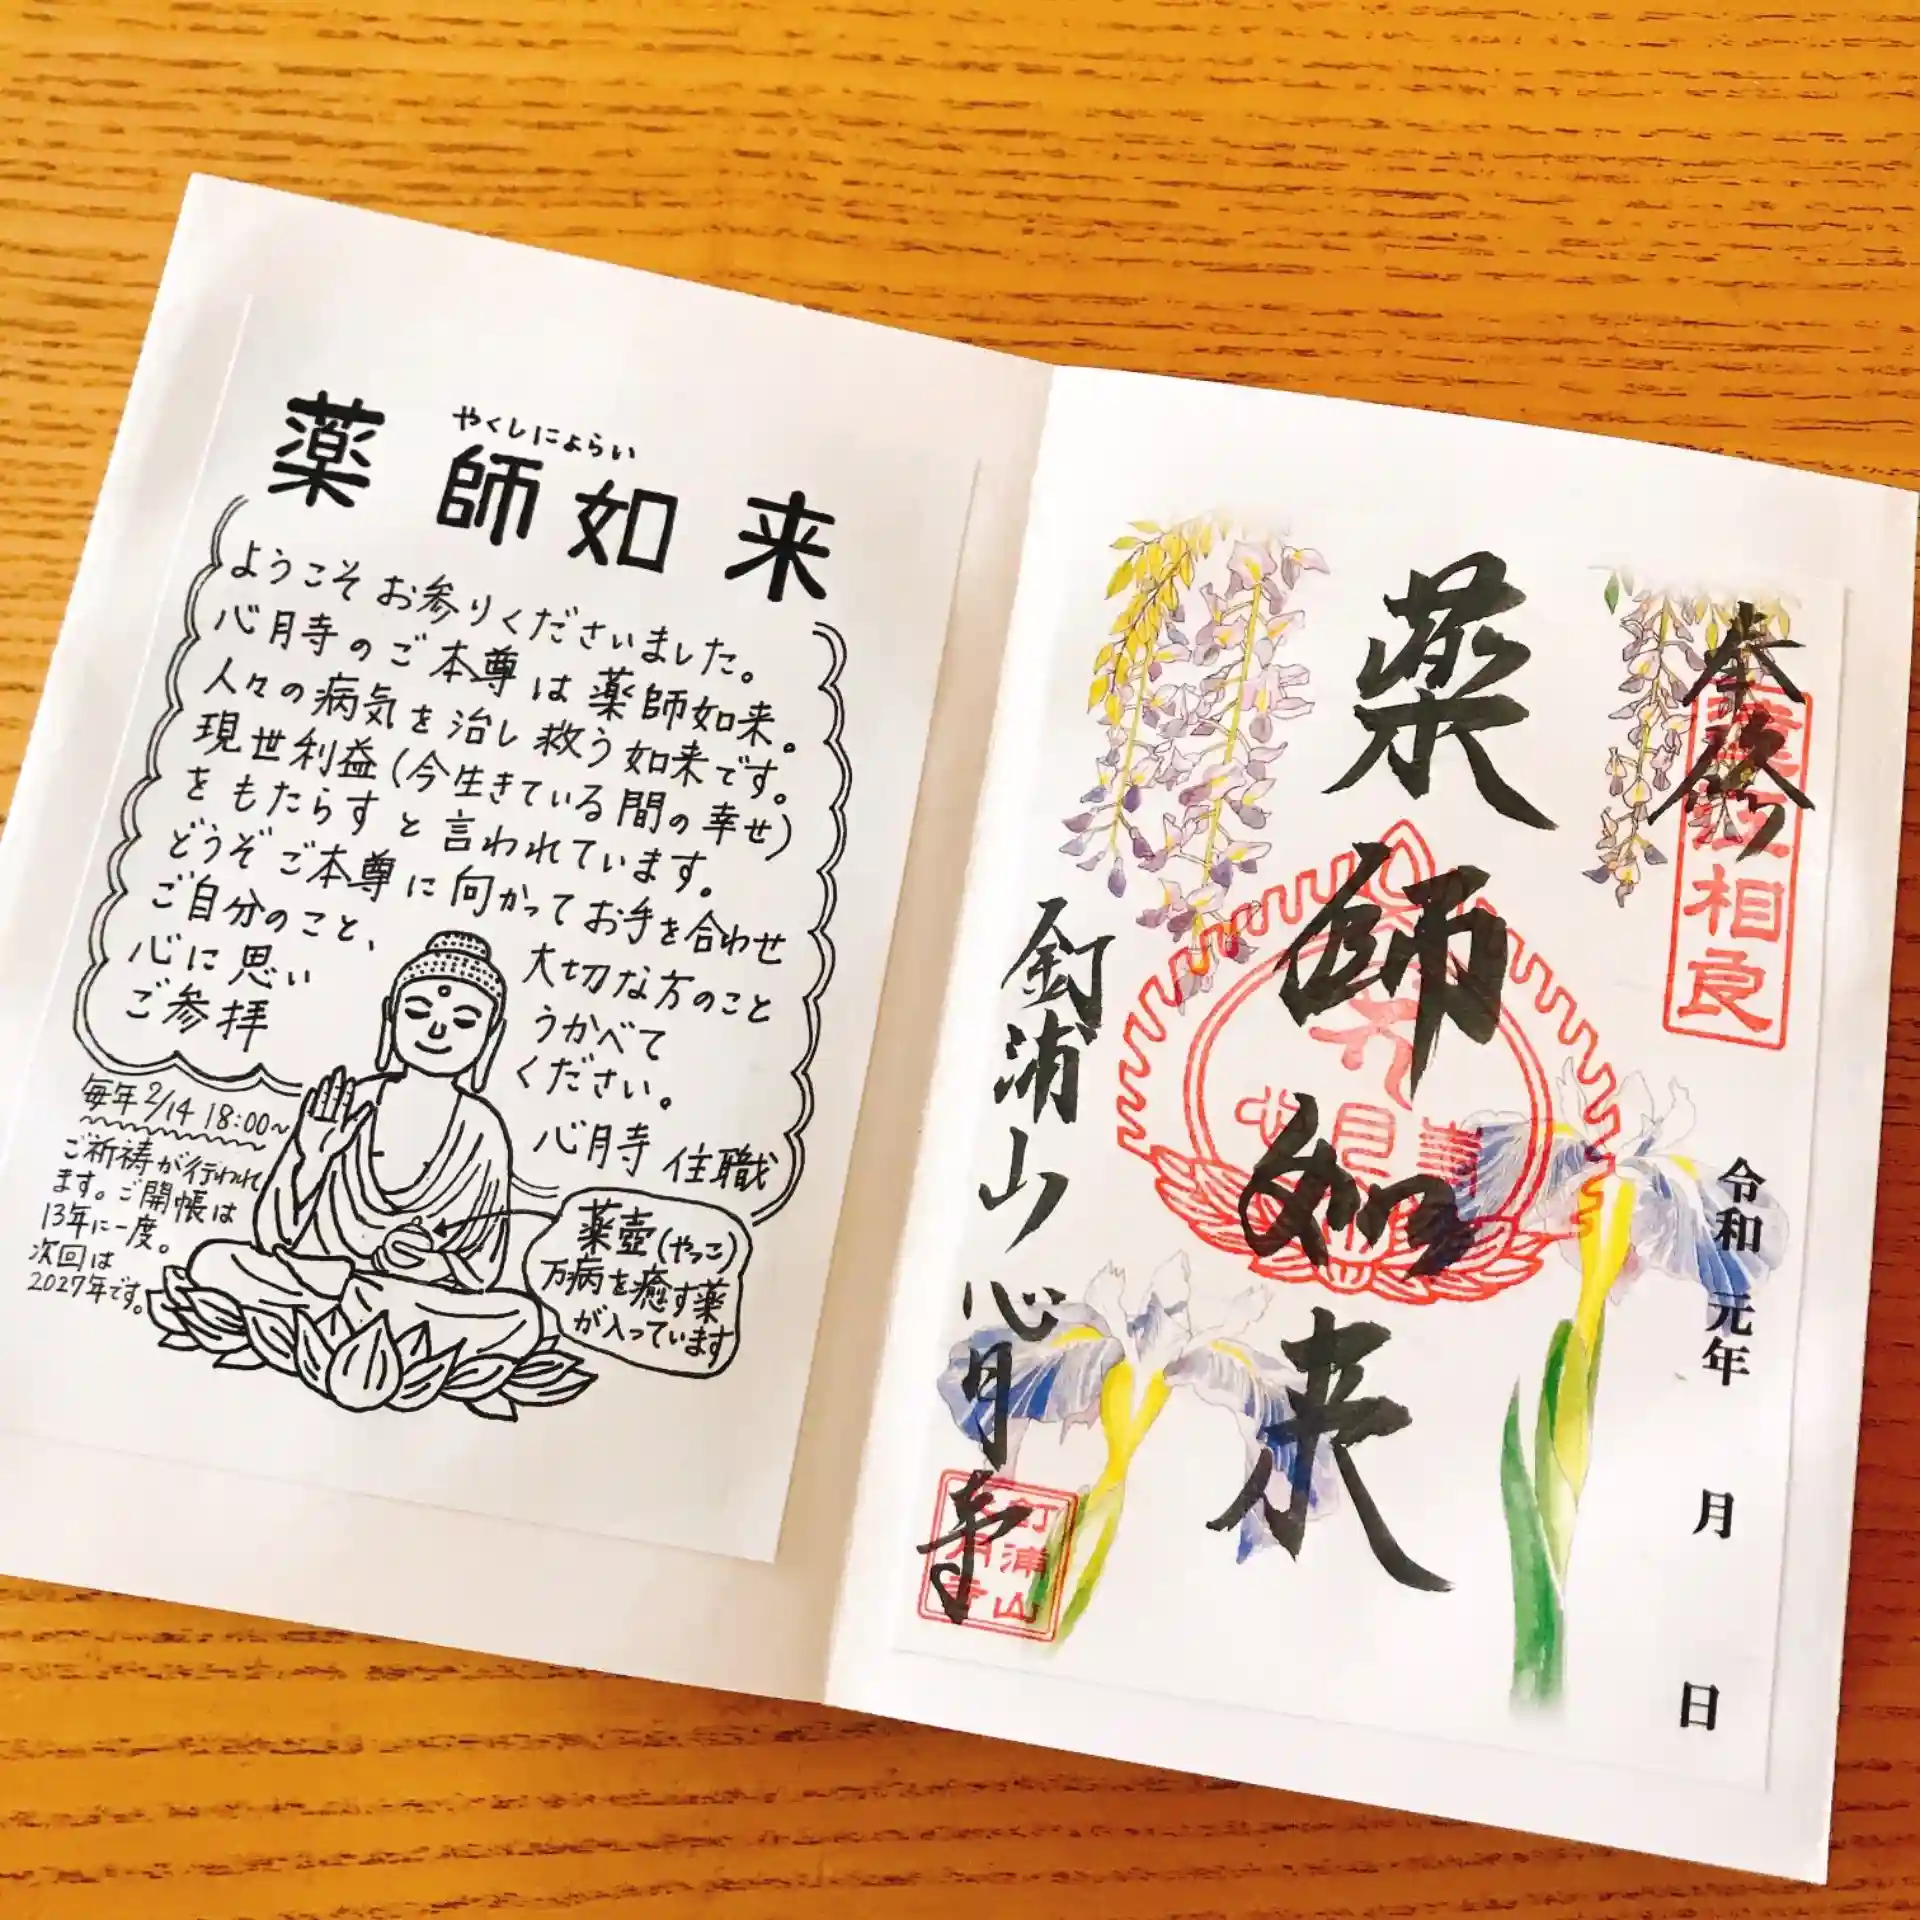 やくしにょらい
薬師如来
ようこそお参りくださいました。
心月寺のご本尊は薬師如来。
人々の病気を治し救う如来です。
現世利益(今生きている間の幸せ)
をもたらすと言われています。
どうぞご本尊に向かってお手を合わせ
ご自分のこと、大切な方のこと
心に思いうかべて
ご参拝ください。
心月寺 住職
毎年2/14 18:00~
ご祈祷が行われ
ます。ご開帳は
13年に一度。
次回は
2027年です。
薬壺(やっこ)
万病を癒す薬
が入っています
奉拝
相良
令和元年 月 日
薬師如来
心月寺
釘浦山心月寺
釘浦山
心月寺